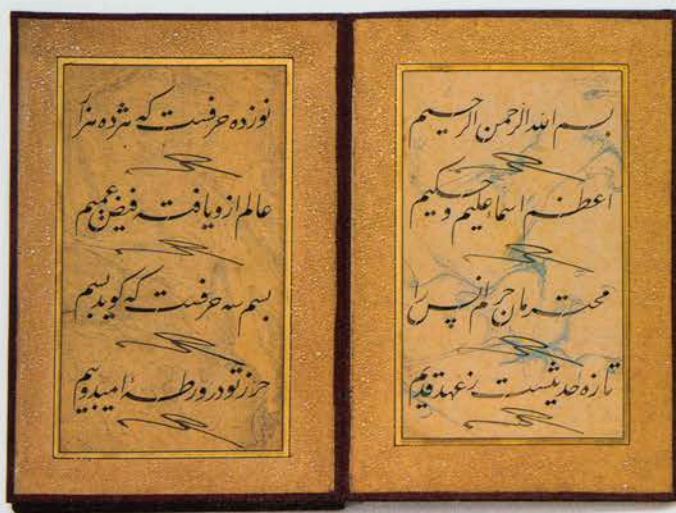 بسم الله الرحمن الرحیم
اعظم اسماء علیم و حکیم
محترمان حرم انس را
تازه حدیثیست ز عهد قدیم
نوزده حرفست که هژده هزار
عالم ازو یافته فیض عمیم
بسم سه حرفست که کوید بسم
حرز تو در ورطهٔ امید و بیم